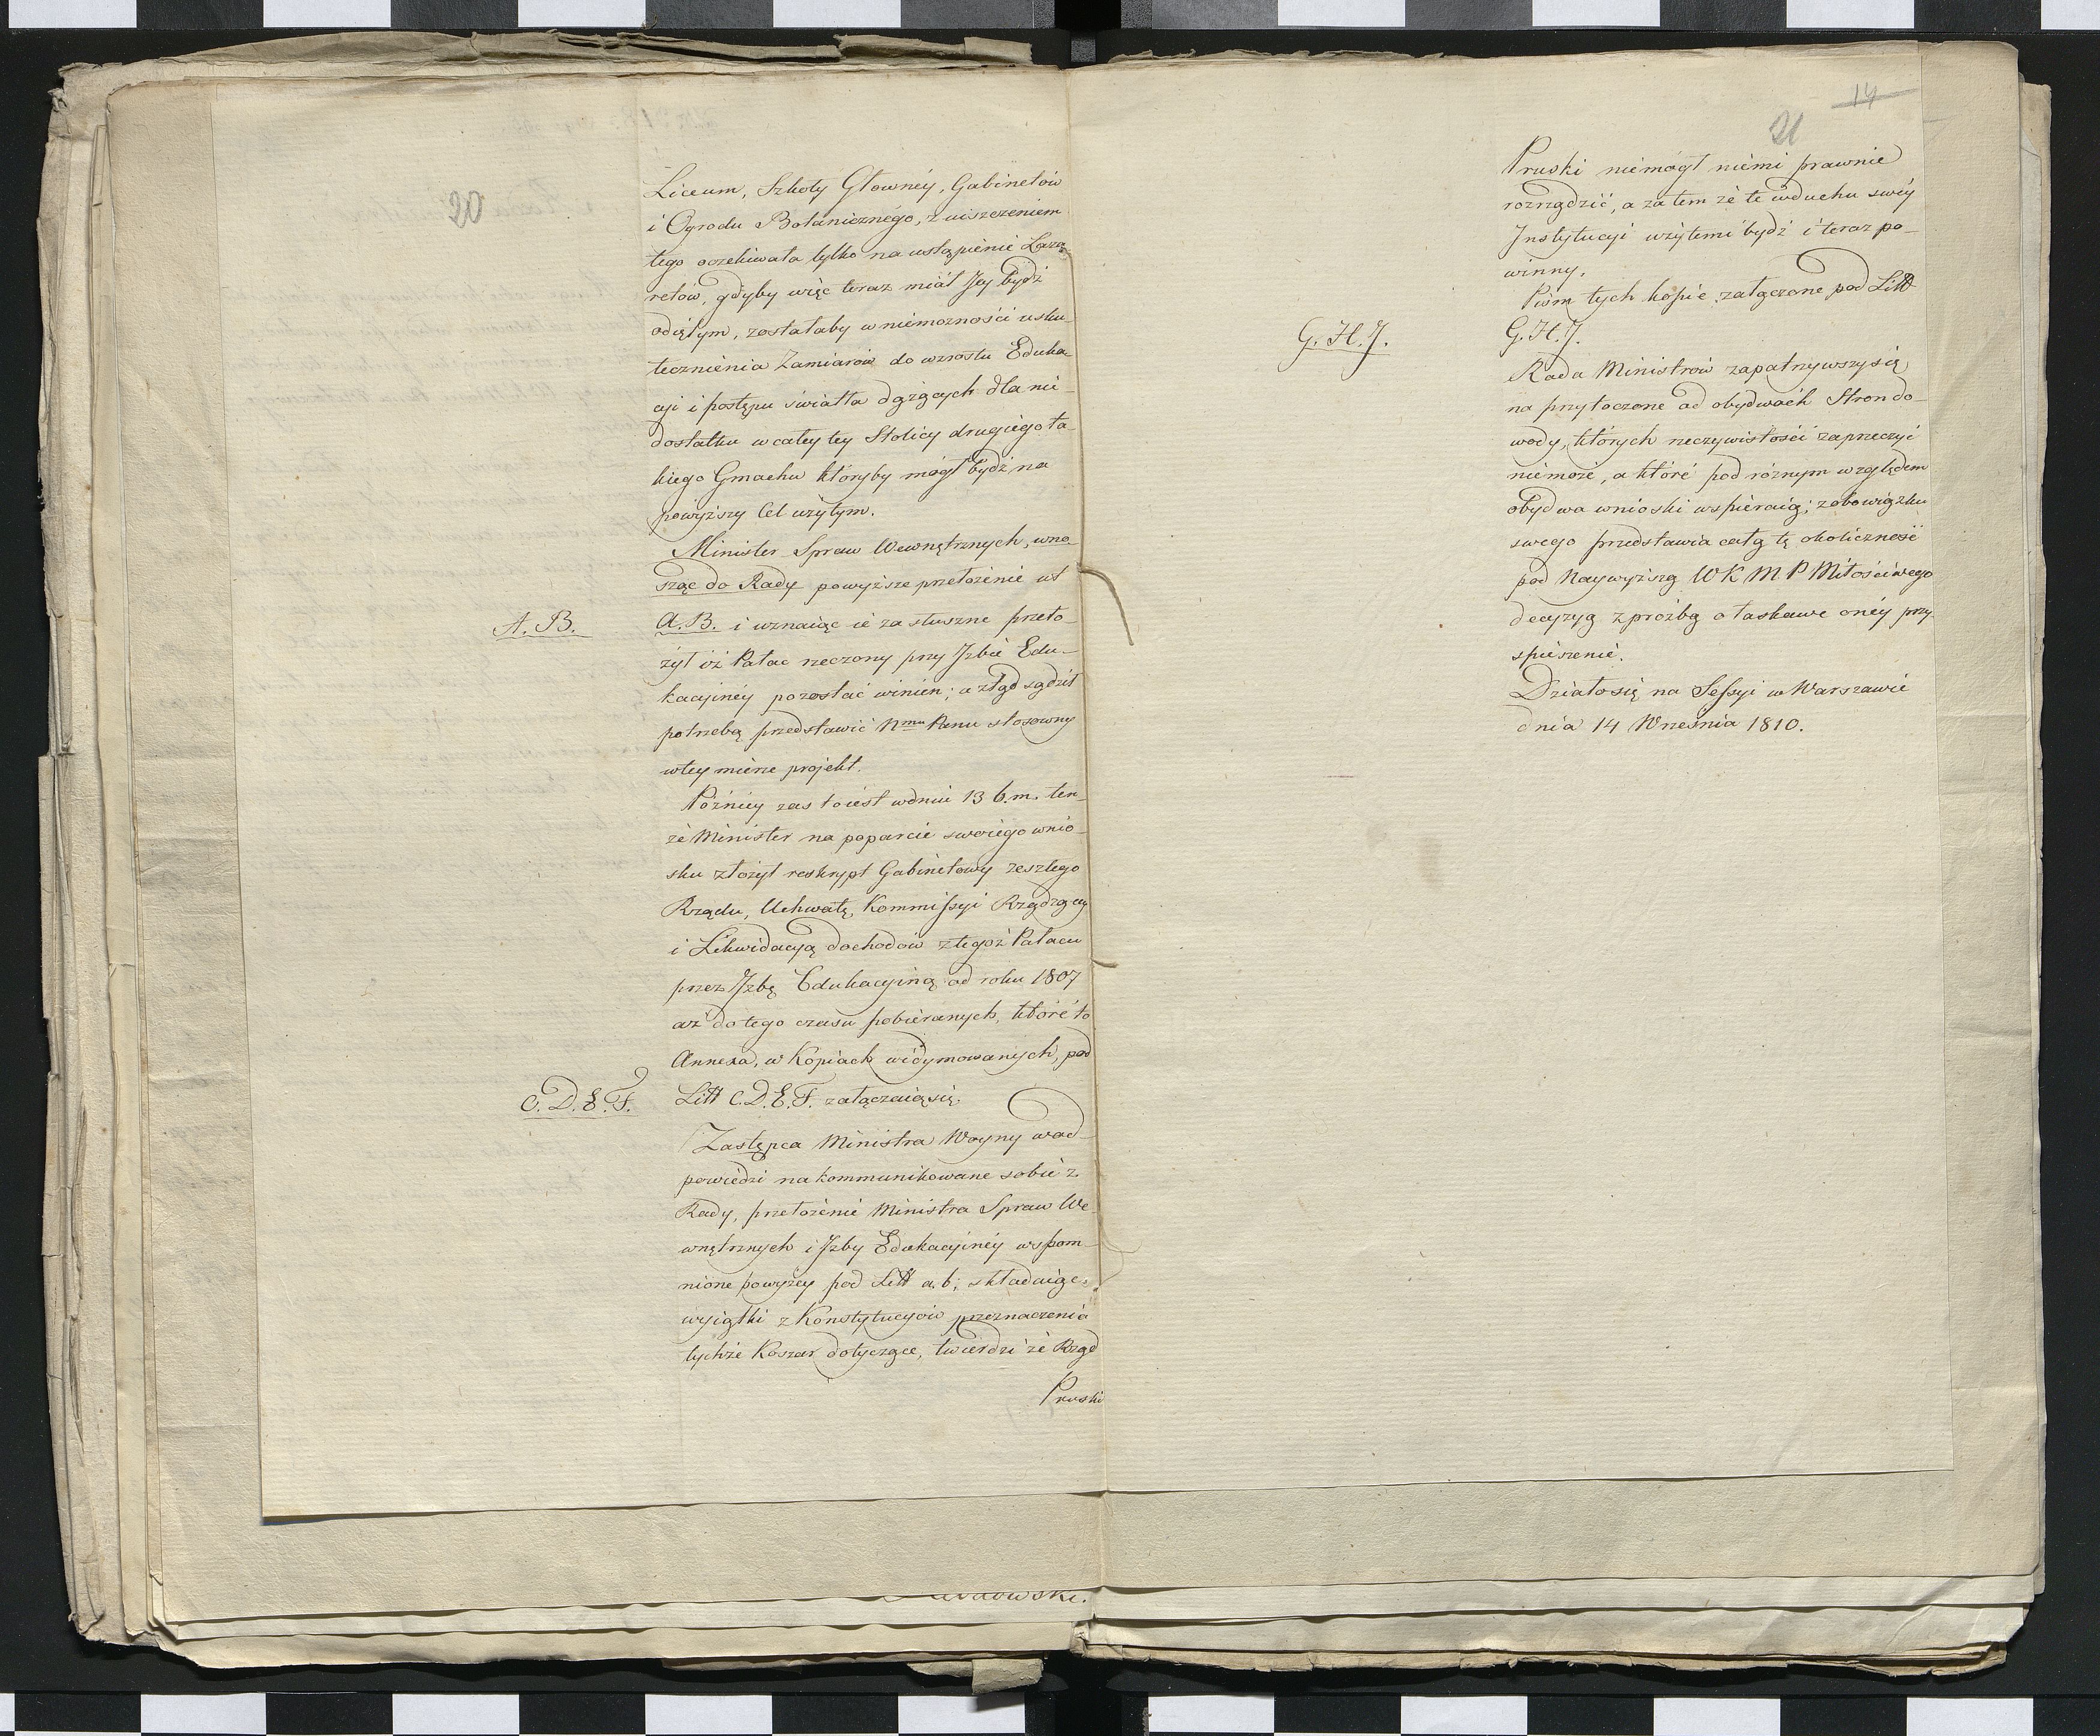 20
Liceum, Szkoły Głownéy, Gabinetów
i Ogrodu Botanicznego, z uiszczeniem
tego oczekiwała tylko na ustąpienie Laza
retów, gdyby więc teraz miał Jey bydź
odiętym, zostałaby w niemożności usku
tecznienia Zamiarów do wzrostu Eduka
cyi i postępu światła dążących dla nie
dostatku w całey tey Stolicy drugiego ta
kiego Gmachu któryby mógł bydź na
powyższy Cel użytym.
Minister Spraw Wewnętrznych, wno
sząc do Rady powyższe przełożenie ut
A. B.
A. B. i uznaiąc ie za słuszne przeło-
żył iż Pałac rzeczony przy Izbie Edu-
kacyinéy pozostać winien; a ztąd sądził
potrzebą przedstawić Nmu Panu stosowny
w tey mierze projekt.
Późniey zas to iest w dniu 13 b. m. ten-
że Minister na poparcie swoiego wnio-
sku złożył reskrypt Gabinetowy zeszłego
Rządu, Uchwałę, Kommissyi Rządzącey
i Likwidacyą dochodów z tegoż Pałacu
przez Izbę Edukacyiną od roku 1807
aż do tego czasu pobieranych, które to
Annexa, w Kopiach widymowanych, pod
C. D. E. F.
Litt C. D. E. F. załączaią się.
Zastępca Ministra Woyny w od-
powiedzi na kommunikowane sobie z
Rady, przełożenie Ministra Spraw We-
wnętrznych i Izby Edukacyinéy wspom-
nione powyżey pod Litt a. b; składaiąc
wyiątki z Konstytucyów przeznaczenia
tychże Koszar dotyczące, twierdzi że Rząd
Pruski
14
21
Pruski niemógł niemi prawnie
rozrządzić, a zatem że te w duchu swéy
Instytucyi użytemi bydź i teraz po-
winny.
Pism tych kopie załączone pod Litt
G. H. J.
G. H. J.
Rada Ministrów zapatrzywszy się
na przytoczone od obydwóch Stron do-
wody, których rzeczywistości zaprzeczyć
niemoże, a które pod różnym względem
obydwa wnioski wspieraią; z obowiązku
swego przedstawia całą tę okoliczność
pod Naywyższą W K M P Miłościwego
decyzyą z prożbą o łaskawe onéy przy-
spieszenie.
Działo się na Sessyi w Warszawie
dnia 14 Września 1810.